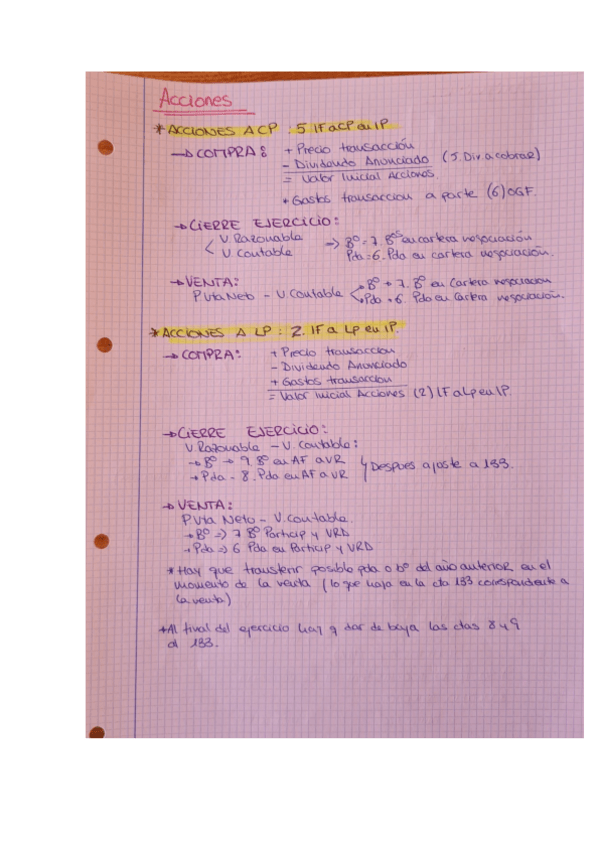 Acciones
* ACCIONES A CP : 5. IF a CP en IP
→ COMPRA: + Precio transacción
- Dividendo Anunciado (5. Div a cobrar)
= Valor Inicial Acciones
* Gastos transaccion a parte (6) OGF.
→ CIERRE EJERCICIO:
< V. Razonable ⇒ Bº = 7. Bºs en cartera negociación
V. Contable Pda = 6. Pda en cartera negociación.
→ VENTA: Bº → 7. Bº en Cartera negociacion
P. Vta Neto - V. Contable < Pda → 6. Pda en Cartera negociación.
* ACCIONES A LP : 2. IF a LP en IP.
→ COMPRA: + Precio transaccion
- Dividendo Anunciado
+ Gastos transaccion
= Valor Inicial Acciones (2) IF a LP en IP.
→ CIERRE EJERCICIO:
V. Razonable - V. Contable:
→ Bº → 9. Bº en AF a VR
→ Pda - 8. Pda en AF a VR } Despues ajuste a 133.
→ VENTA:
P. Vta Neto - V. Contable.
→ Bº ⇒ 7 Bº Particip y VRD
→ Pda ⇒ 6 Pda en Particip y VRD
* Hay que transferir posible pda o bº del año anterior en el
momento de la venta (lo que haya en la cta 133 correspondente a
la venta)
* Al final del ejercicio hay q dar de baja las ctas 8 y 9
al 133.